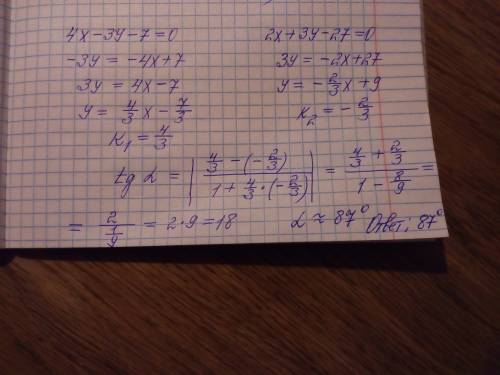 4x-3y-7=0
-3y = -4x+7
3y = 4x-7
y = 4/3 x - 7/3
K₁ = 4/3
2x+3y-27=0
3y = -2x+27
y = -2/3 x +9
K₂ = -2/3
tg α = | (4/3 - (-2/3)) / (1 + 4/3 · (-2/3)) | = (4/3 + 2/3) / (1 - 8/9) =
= 2 / (1/9) = 2·9 = 18 α ≈ 87° Ответ: 87°